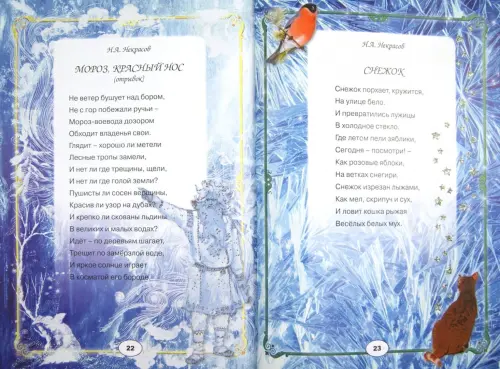 Н.А. Некрасов
МОРОЗ, КРАСНЫЙ НОС
(отрывок)
Не ветер бушует над бором,
Не с гор побежали ручьи –
Мороз-воевода дозором
Обходит владенья свои.
Глядит – хорошо ли метели
Лесные тропы замели,
И нет ли где трещины, щели,
И нет ли где голой земли?
Пушисты ли сосен вершины,
Красив ли узор на дубах?
И крепко ли скованы льдины
В великих и малых водах?
Идёт – по деревьям шагает,
Трещит по замёрзлой воде,
И яркое солнце играет
В косматой его бороде...
22
Н.А. Некрасов
СНЕЖОК
Снежок порхает, кружится,
На улице бело.
И превратились лужицы
В холодное стекло.
Где летом пели зяблики,
Сегодня – посмотри! –
Как розовые яблоки,
На ветках снегири.
Снежок изрезан лыжами,
Как мел, скрипуч и сух,
И ловит кошка рыжая
Весёлых белых мух.
23